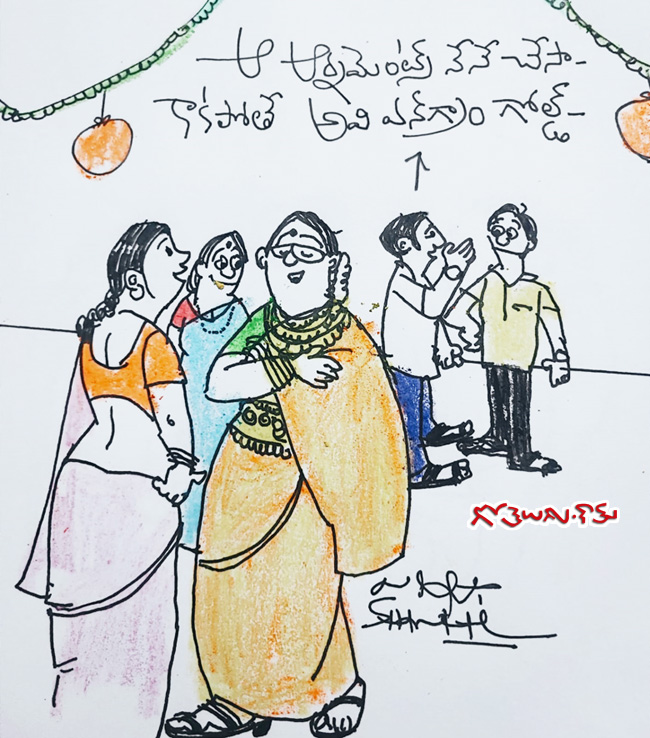 ఆ ఆర్నమెంట్స్ నేనే చేసా-
కాకపోతే అవి వన్‌గ్రాం గోల్డ్-
గోతెలుగు.కామ్